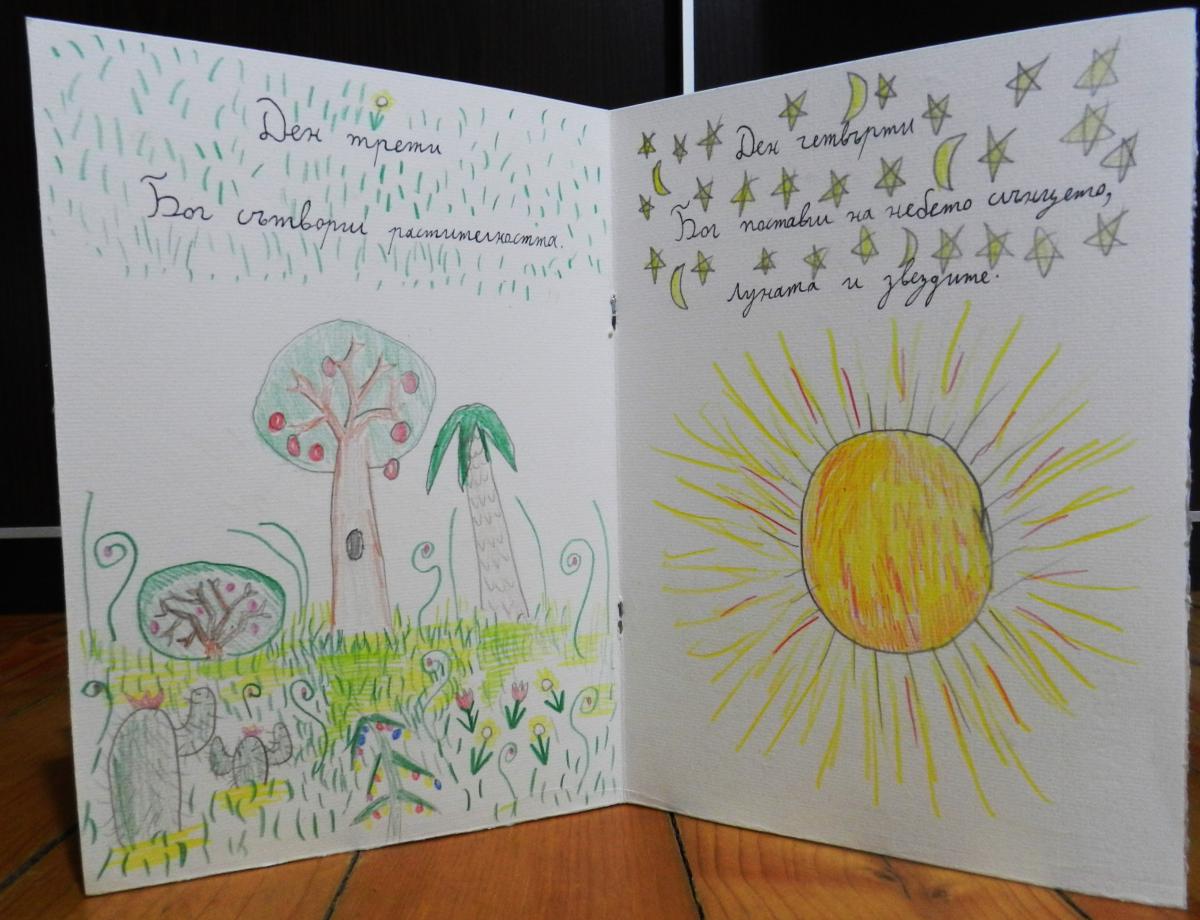 Ден трети
Бог сътвори растителността.
Ден четвърти
Бог постави на небето слънцето,
луната и звездите.